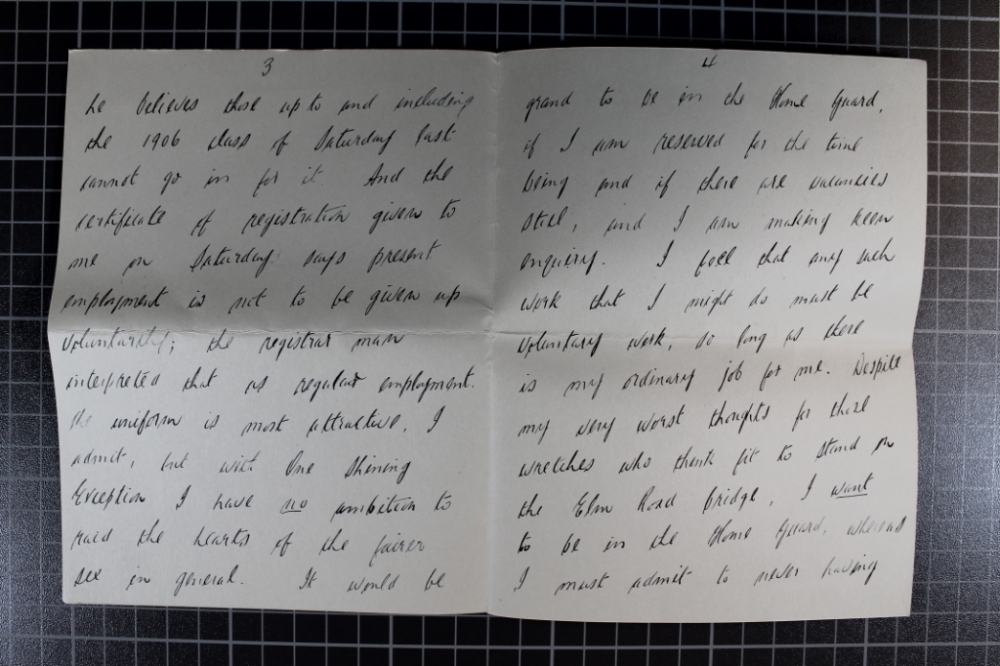 3
he believes those up to and including
the 1906 class of Saturday last
cannot go in for it. And the
certificate of registration given to
me on Saturday says present
employment is not to be given up
voluntarily; the registrar man
interpreted that as regular employment.
The uniform is most attractive, I
admit, but with One Shining
Exception I have no ambition to
raid the hearts of the fairer
sex in general. It would be
4
grand to be in the Home Guard,
if I am reserved for the time
being and if there are vacancies
still, and I am making keen
enquiry. I feel that any such
work that I might do must be
voluntary work, so long as there
is my ordinary job for me. Despite
my very worst thoughts for those
wretches who think fit to stand on
the Elm Road bridge, I want
to be in the Home Guard, whereas
I must admit to never having